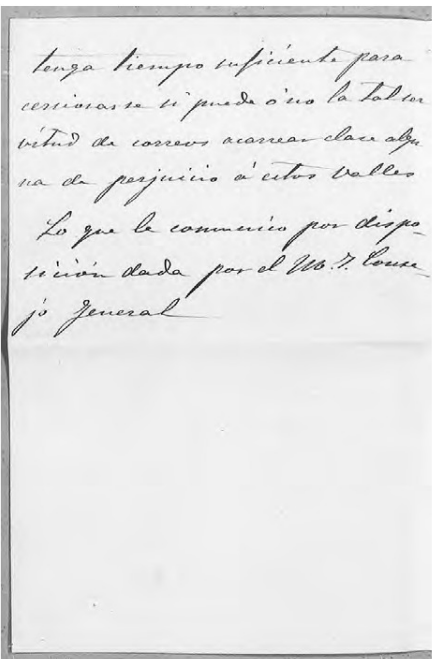 tenga tiempo suficiente para
cersiorarse si puede ó no la tal ser
vitud de correos acarrear clase algu
na de perjuicio á estos Valles
Lo que le comunico por dispo-
sición dada por el M. I. Conse-
jo General